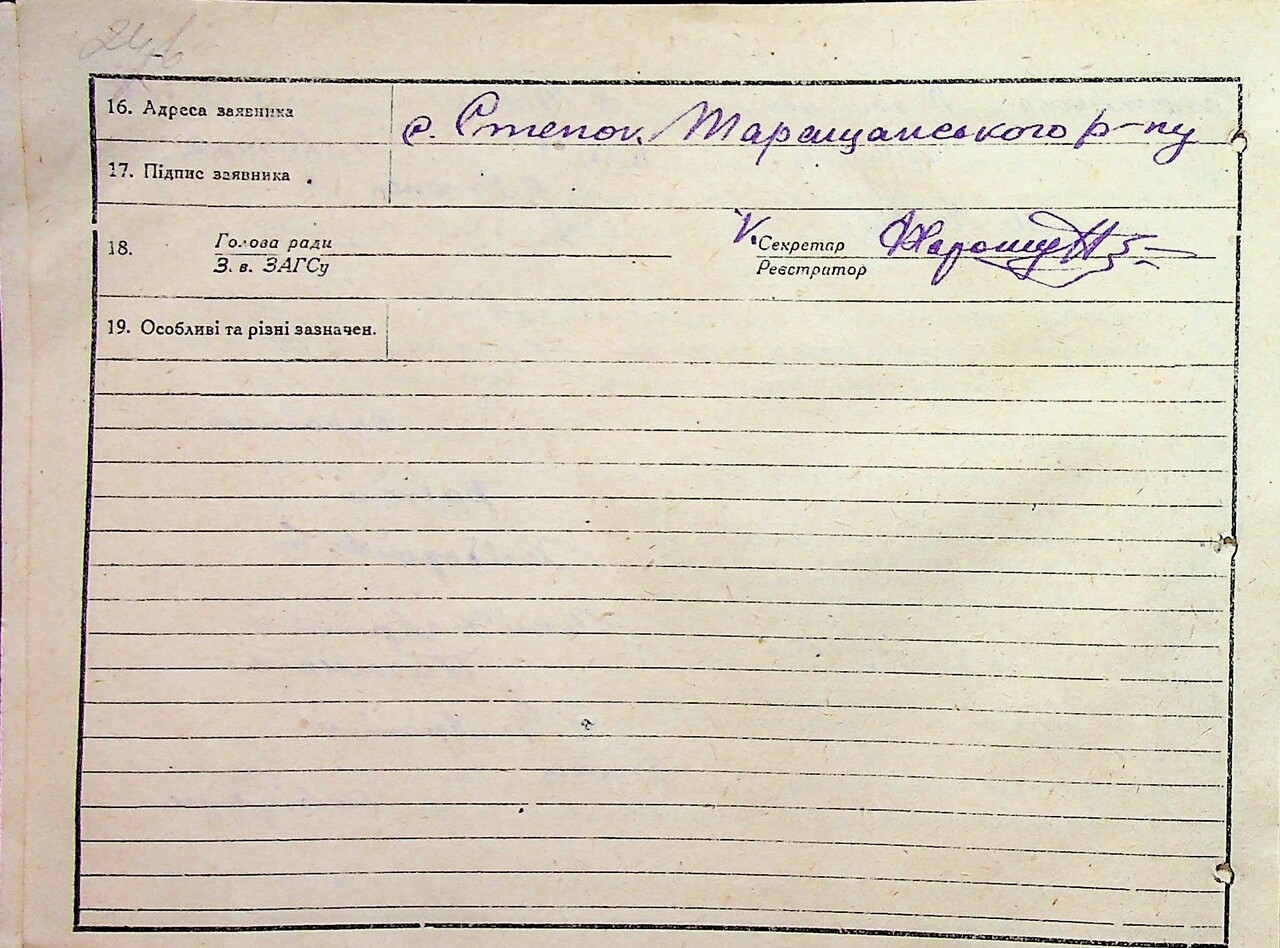 16. Адреса заявника
с. Степок Таращанського р-ну
17. Підпис заявника
18. Голова ради Секретар
З. в. ЗАГСу Реєстратор
19. Особливі та різні зазначен.